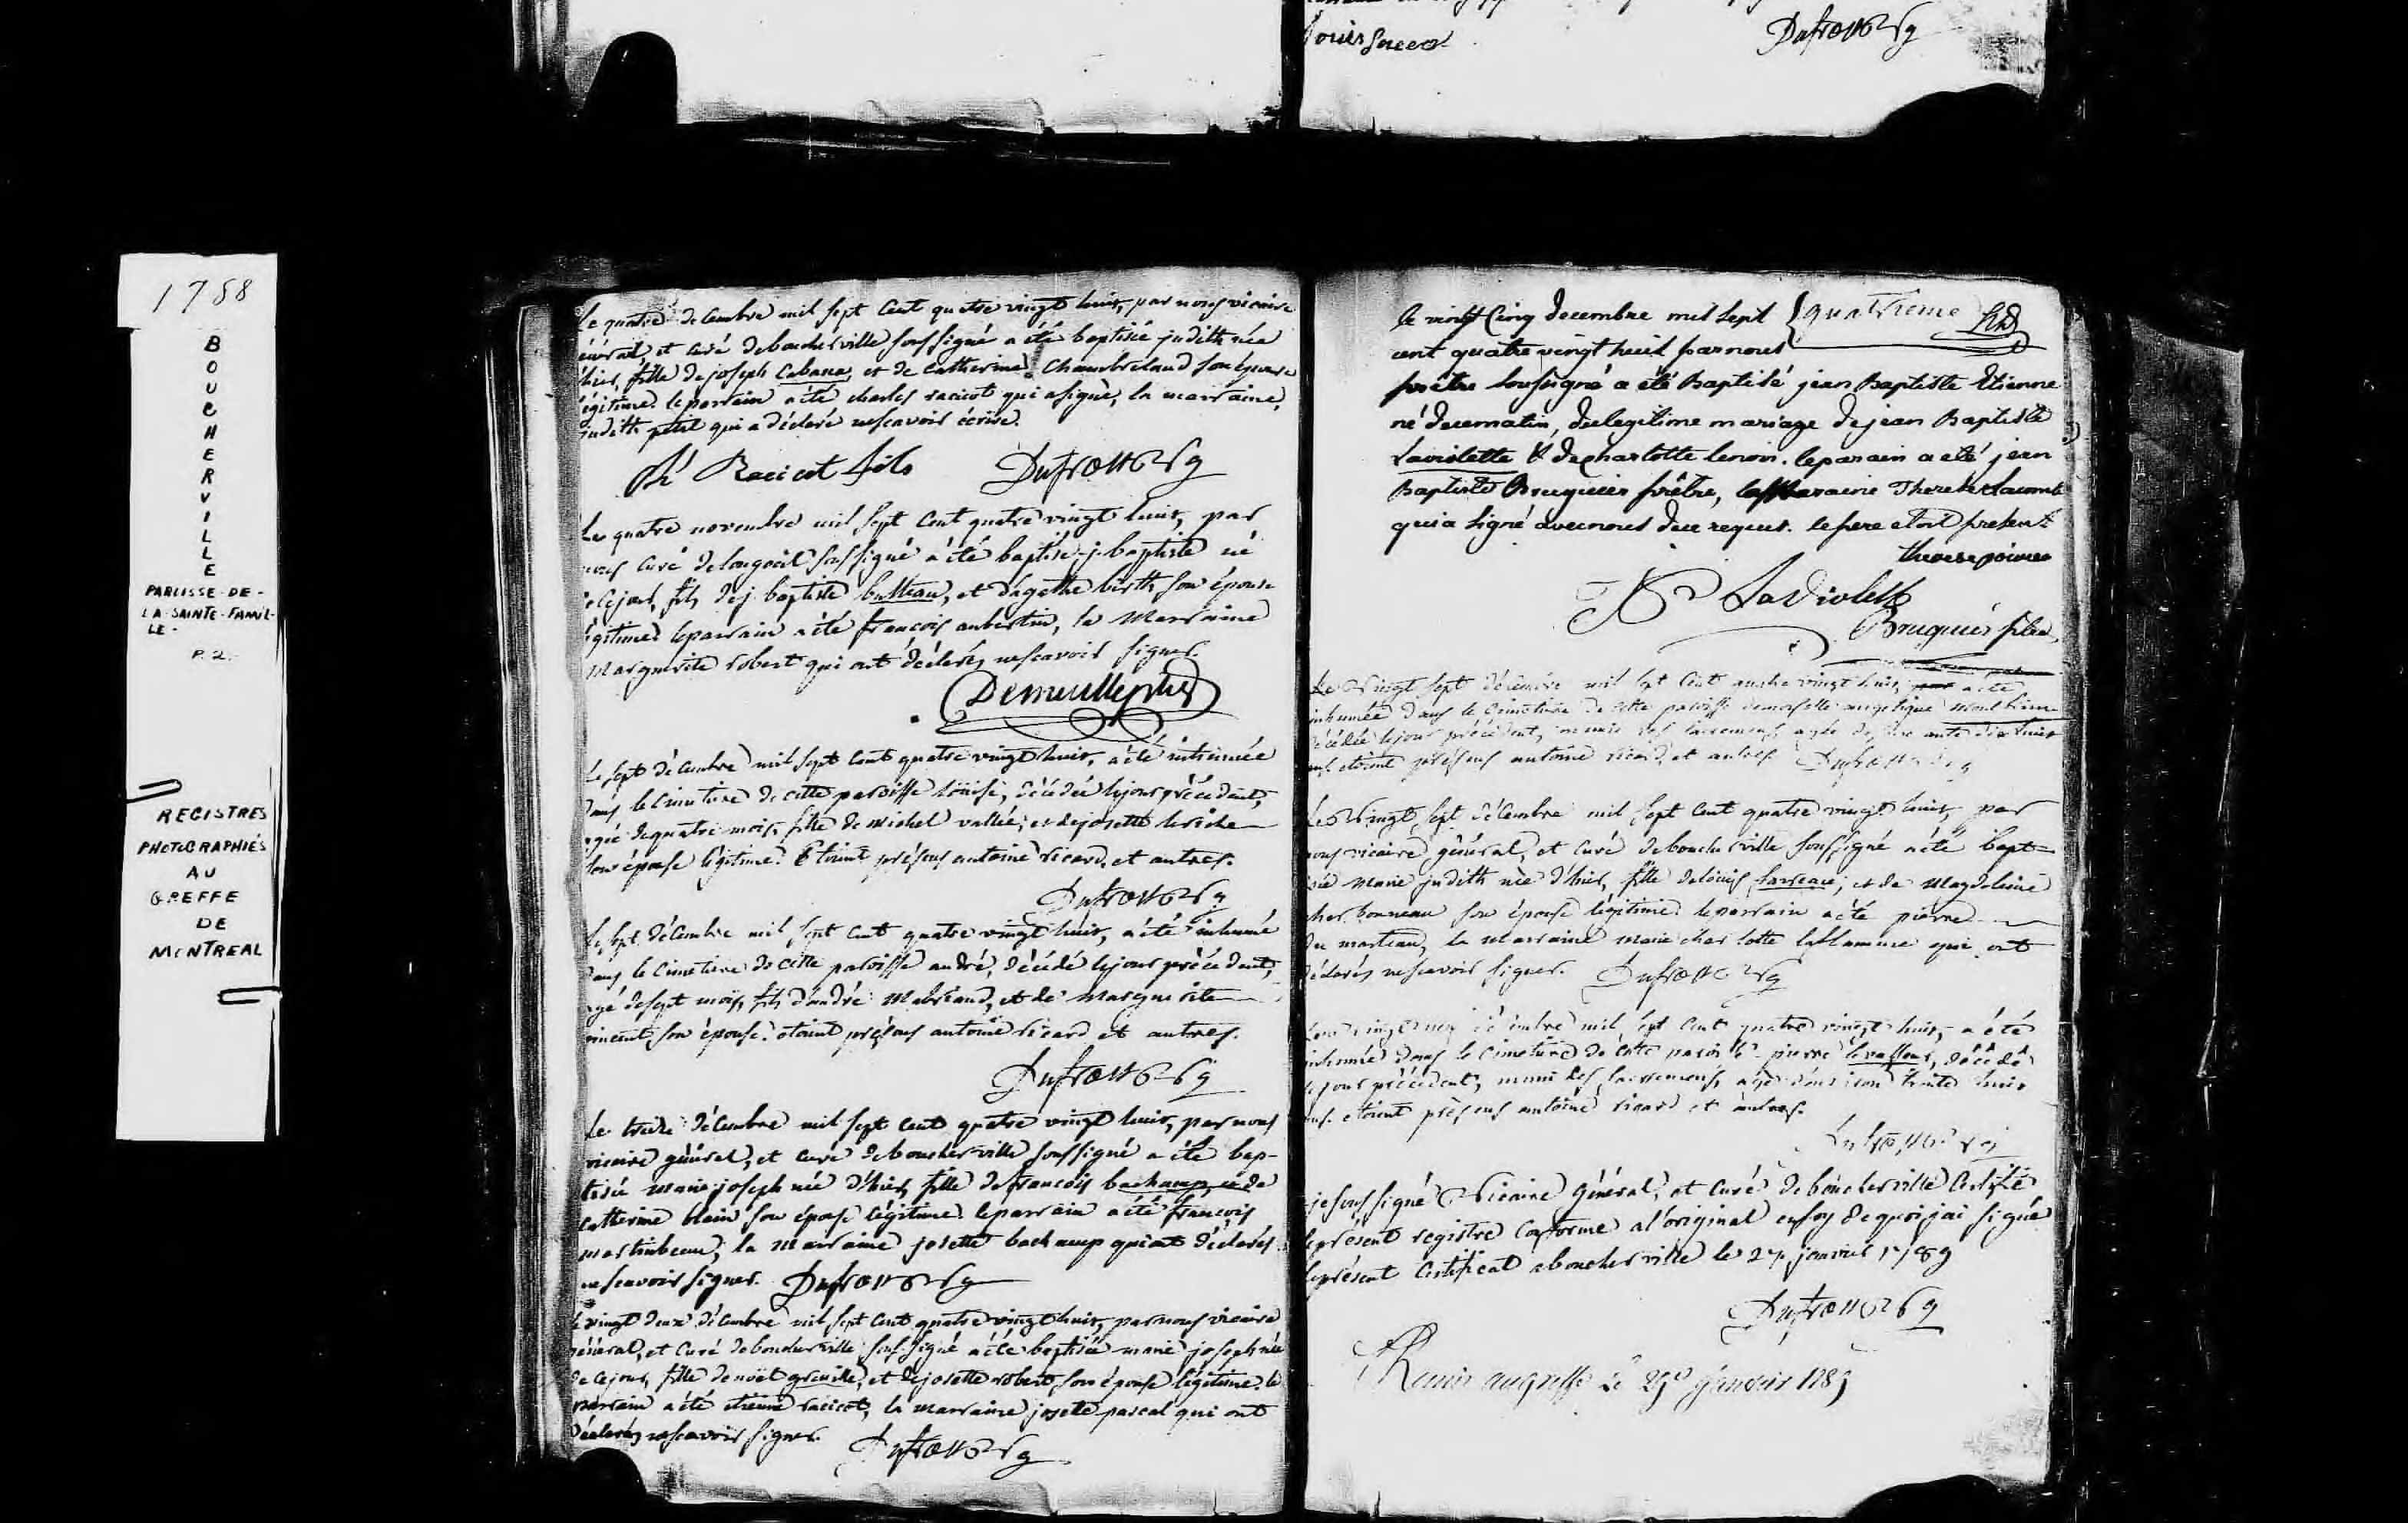 Dufrost vg
1788
BOUCHERVILLE
PAROISSE-DE-
LA-SAINTE-FAMIL-
LE-
P. 2.
REGISTRES
PHOTOGRAPHIÉS
AU
GREFFE
DE
MONTREAL
Le quatre decembre mil sept cent quatre vingt huit, par nous vicaire
général, et curé deboucherville soussigné a été baptisée judith née
d'hier, fille de joseph Cabana, et de catherine Chambreland son épouse
légitime. leparrain aété charles racicot qui asigné, la marraine,
judith petit qui a déclaré nescavoir écrire.
Ch Racicot fils Dufrost vg
Le quatre novembre mil sept cent quatre vingt huit, par
nous curé delongeuil soussigné aété baptisé j. baptiste né
cejour, fils dej. baptiste, et dagathe son épouse
légitime. leparrain aété francois aubertin, la Marraine
Marguerite robert qui ont déclarés nescavoir signer.
Demeulle ptre
Le sept décembre mil sept cent quatre vingt huit, aété inhumée
dans le cimetiere de cette paroisse, décédée lejour précédent,
agée dequatre mois, fille de Michel vallée, et dejosette
son épouse légitime. Etoient présens antoine ricard, et autres.
Dufrost vg
Le sept décembre mil sept cent quatre vingt huit, aété inhumé
dans le cimetiere de cette paroisse andré, décédé lejour précédent,
agé desept mois, fils d'andré, et de Marguerite
vincent, son épouse. etoient présens antoine ricard et autres.
Dufrost vg
Le treize décembre mil sept cent quatre vingt huit, par nous
vicaire général, et curé deboucherville soussigné a été bap-
tisée marie joseph née d'hier, fille defrancois bachamp, et de
catherine blain son épouse légitime. leparrain aété francois
martinbeau, la Marraine josette bachamp qui ont déclarés
nescavoir signer. Dufrost vg
Le vingt deux décembre mil sept cent quatre vingt huit, par nous vicaire
général, et curé deboucherville soussigné aété baptisée marie joseph née
de cejour, fille denoël, et dejosette robert son épouse légitime. le
parrain aété étienne racicot, la marraine josette pascal qui ont
déclarés nescavoir signer. Dufrost vg
le vingt cinq decembre mil sept { quatrieme
cent quatre vingt huit par nous
prêtre soussigné a été Baptisé jean Baptiste Etienne
né decematin, delegitime mariage dejean Baptiste
Laviolette & decharlotte lenoir. leparain a eté jean
Baptiste Bruguier prêtre, Therese
qui a signé avec nous dece requis. lepere etoit present
J B Laviolette
Bruguier ptre
Le Vingt sept décembre mil sept cent quatre vingt huit, aété
inhumée dans le cimetiere de cette paroisse demoiselle angelique
décédée lejour précédent, munie des sacremens, agée de soixante dix huit
ans. etoient présens antoine ricard, et autres. Dufrost vg
Le Vingt sept décembre mil sept cent quatre vingt huit, par
nous vicaire général, et curé deboucherville soussigné aété bapt-
isée Marie judith née d'hier, fille delouis, et de Magdeleine
charbonneau son épouse légitime. leparrain aété pierre
du marteau, la Marraine marie charlotte laflamme qui ont
déclarés nescavoir signer. Dufrost vg
Le vingt décembre mil sept cent quatre vingt huit, a été
inhumé dans le cimetiere de cette paroisse pierre, décédé
lejour précédent, muni des sacremens, agé d'environ trente huit
ans. etoient présens antoine ricard et autres.
Dufrost vg
je soussigné Vicaire Général, et curé deboucherville Certifie
leprésent registre conforme a l'original en foy dequoi jai signé
leprésent Certificat a boucherville le janvier 1789
Dufrost vg
Remis augreffe le 29e janvier 1789